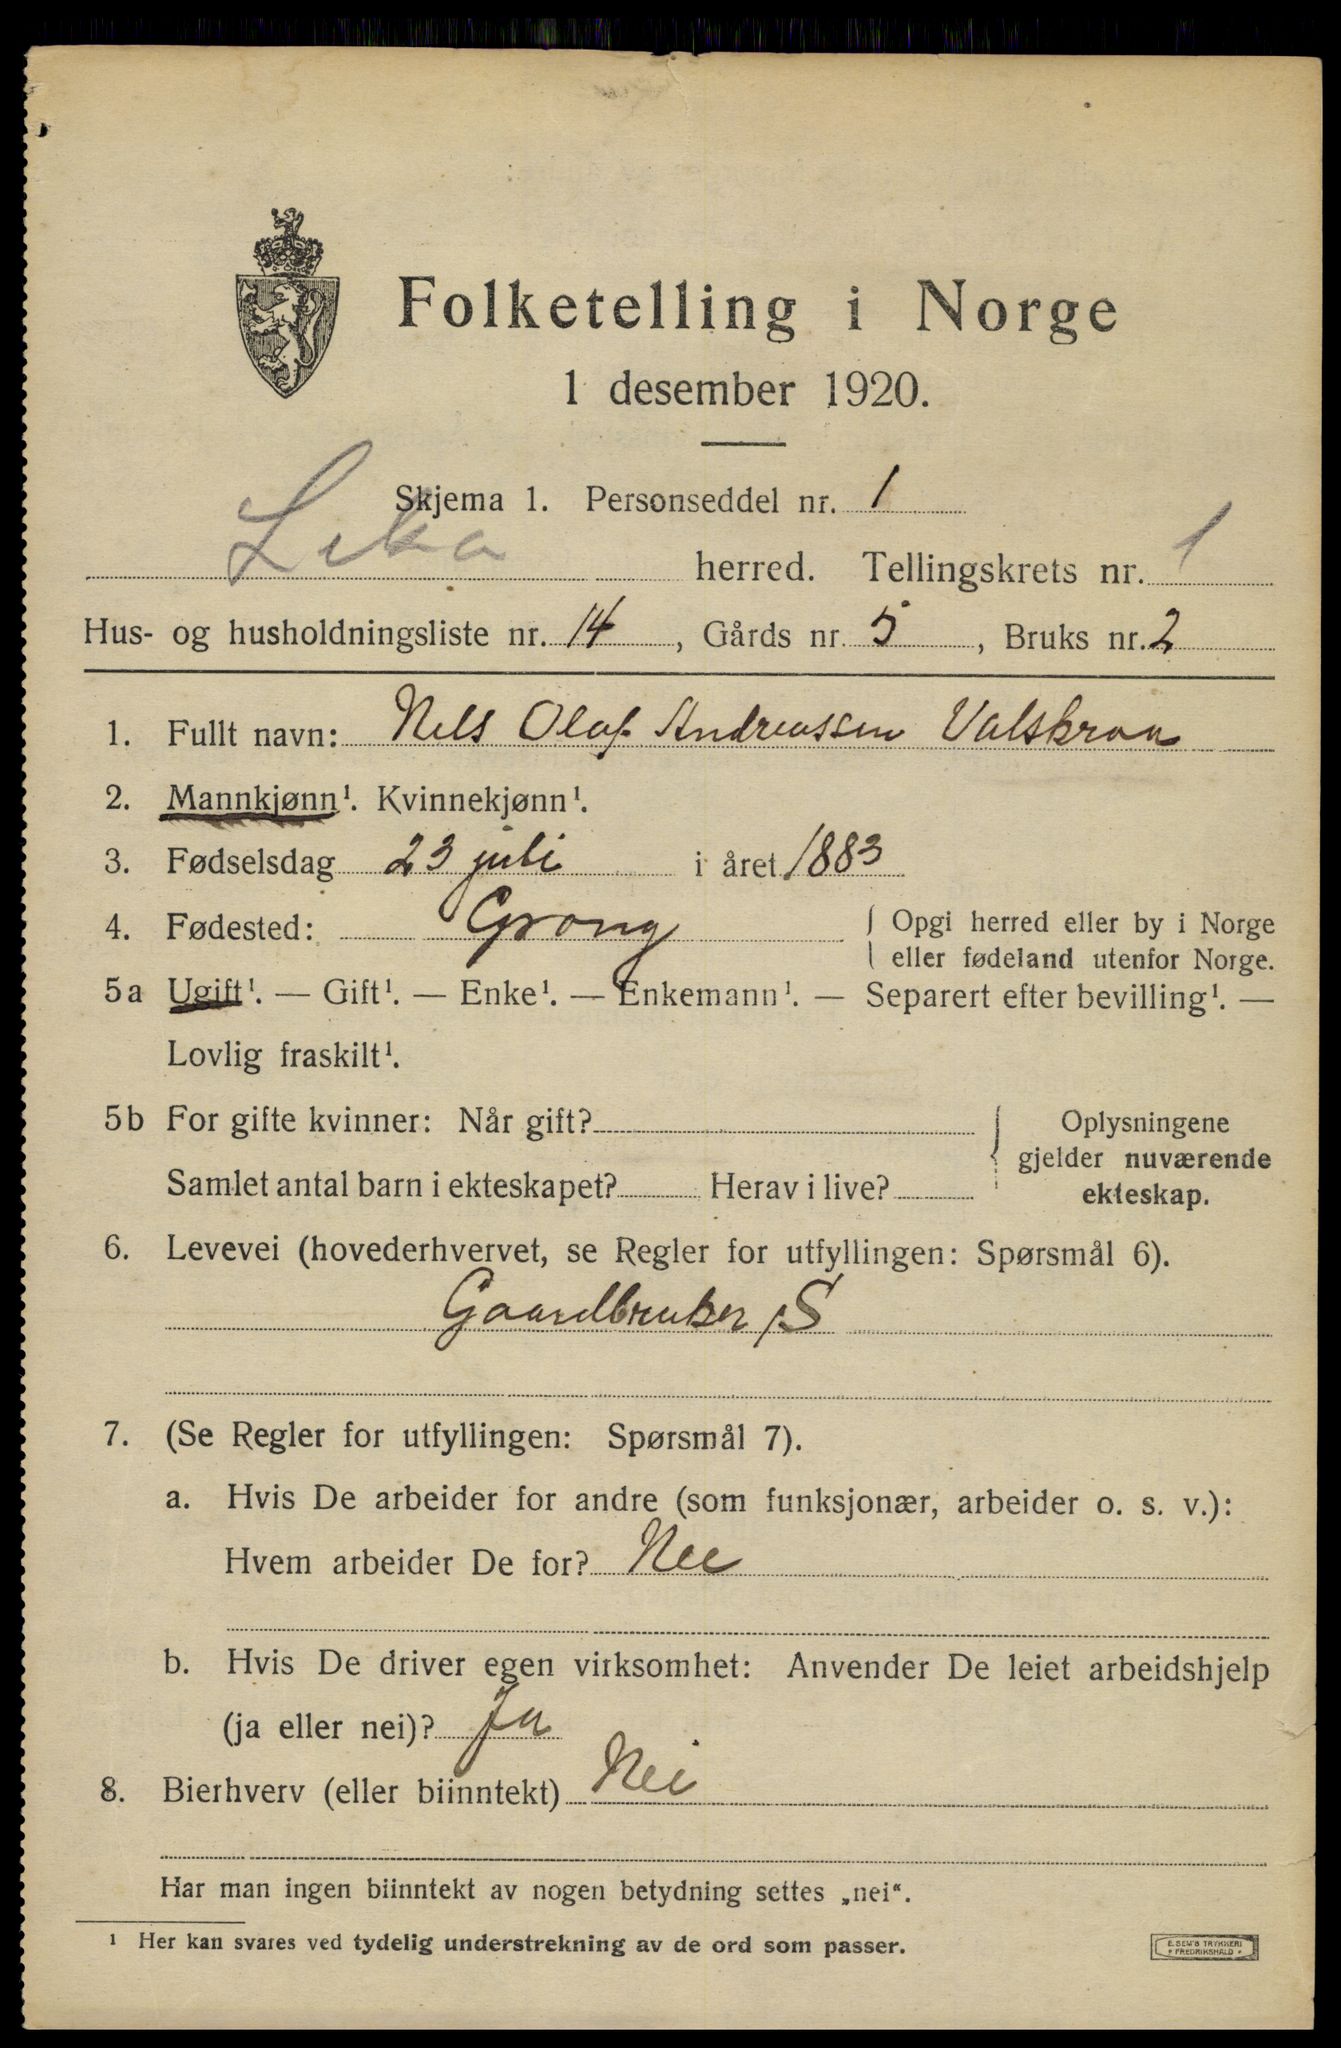 Folketelling i Norge
1 desember 1920.
Skjema 1. Personseddel nr. 1
Leka herred. Tellingskrets nr. 1
Hus- og husholdningsliste nr. 14, Gårds nr. 5, Bruks nr. 2
1. Fullt navn: Nils Olaf Andreassen Valskraa
2. Mannkjønn¹. Kvinnekjønn¹.
3. Fødselsdag 23 juli i året 1883
4. Fødested: Grong { Opgi herred eller by i Norge
eller fødeland utenfor Norge.
5a Ugift¹. — Gift¹. — Enke¹. — Enkemann¹. — Separert efter bevilling¹. —
Lovlig fraskilt¹.
5b For gifte kvinner: Når gift? { Oplysningene
gjelder nuværende
Samlet antal barn i ekteskapet? Herav i live? ekteskap.
6. Levevei (hovederhvervet, se Regler for utfyllingen: Spørsmål 6).
Gaardbruker S
7. (Se Regler for utfyllingen: Spørsmål 7).
a. Hvis De arbeider for andre (som funksjonær, arbeider o. s. v.):
Hvem arbeider De for? Nei
b. Hvis De driver egen virksomhet: Anvender De leiet arbeidshjelp
(ja eller nei)? Ja
8. Bierhverv (eller biinntekt) Nei
Har man ingen biinntekt av nogen betydning settes „nei“.
¹ Her kan svares ved tydelig understrekning av de ord som passer.
E. SEM'S TRYKKERI
• FREDRIKSHALD •